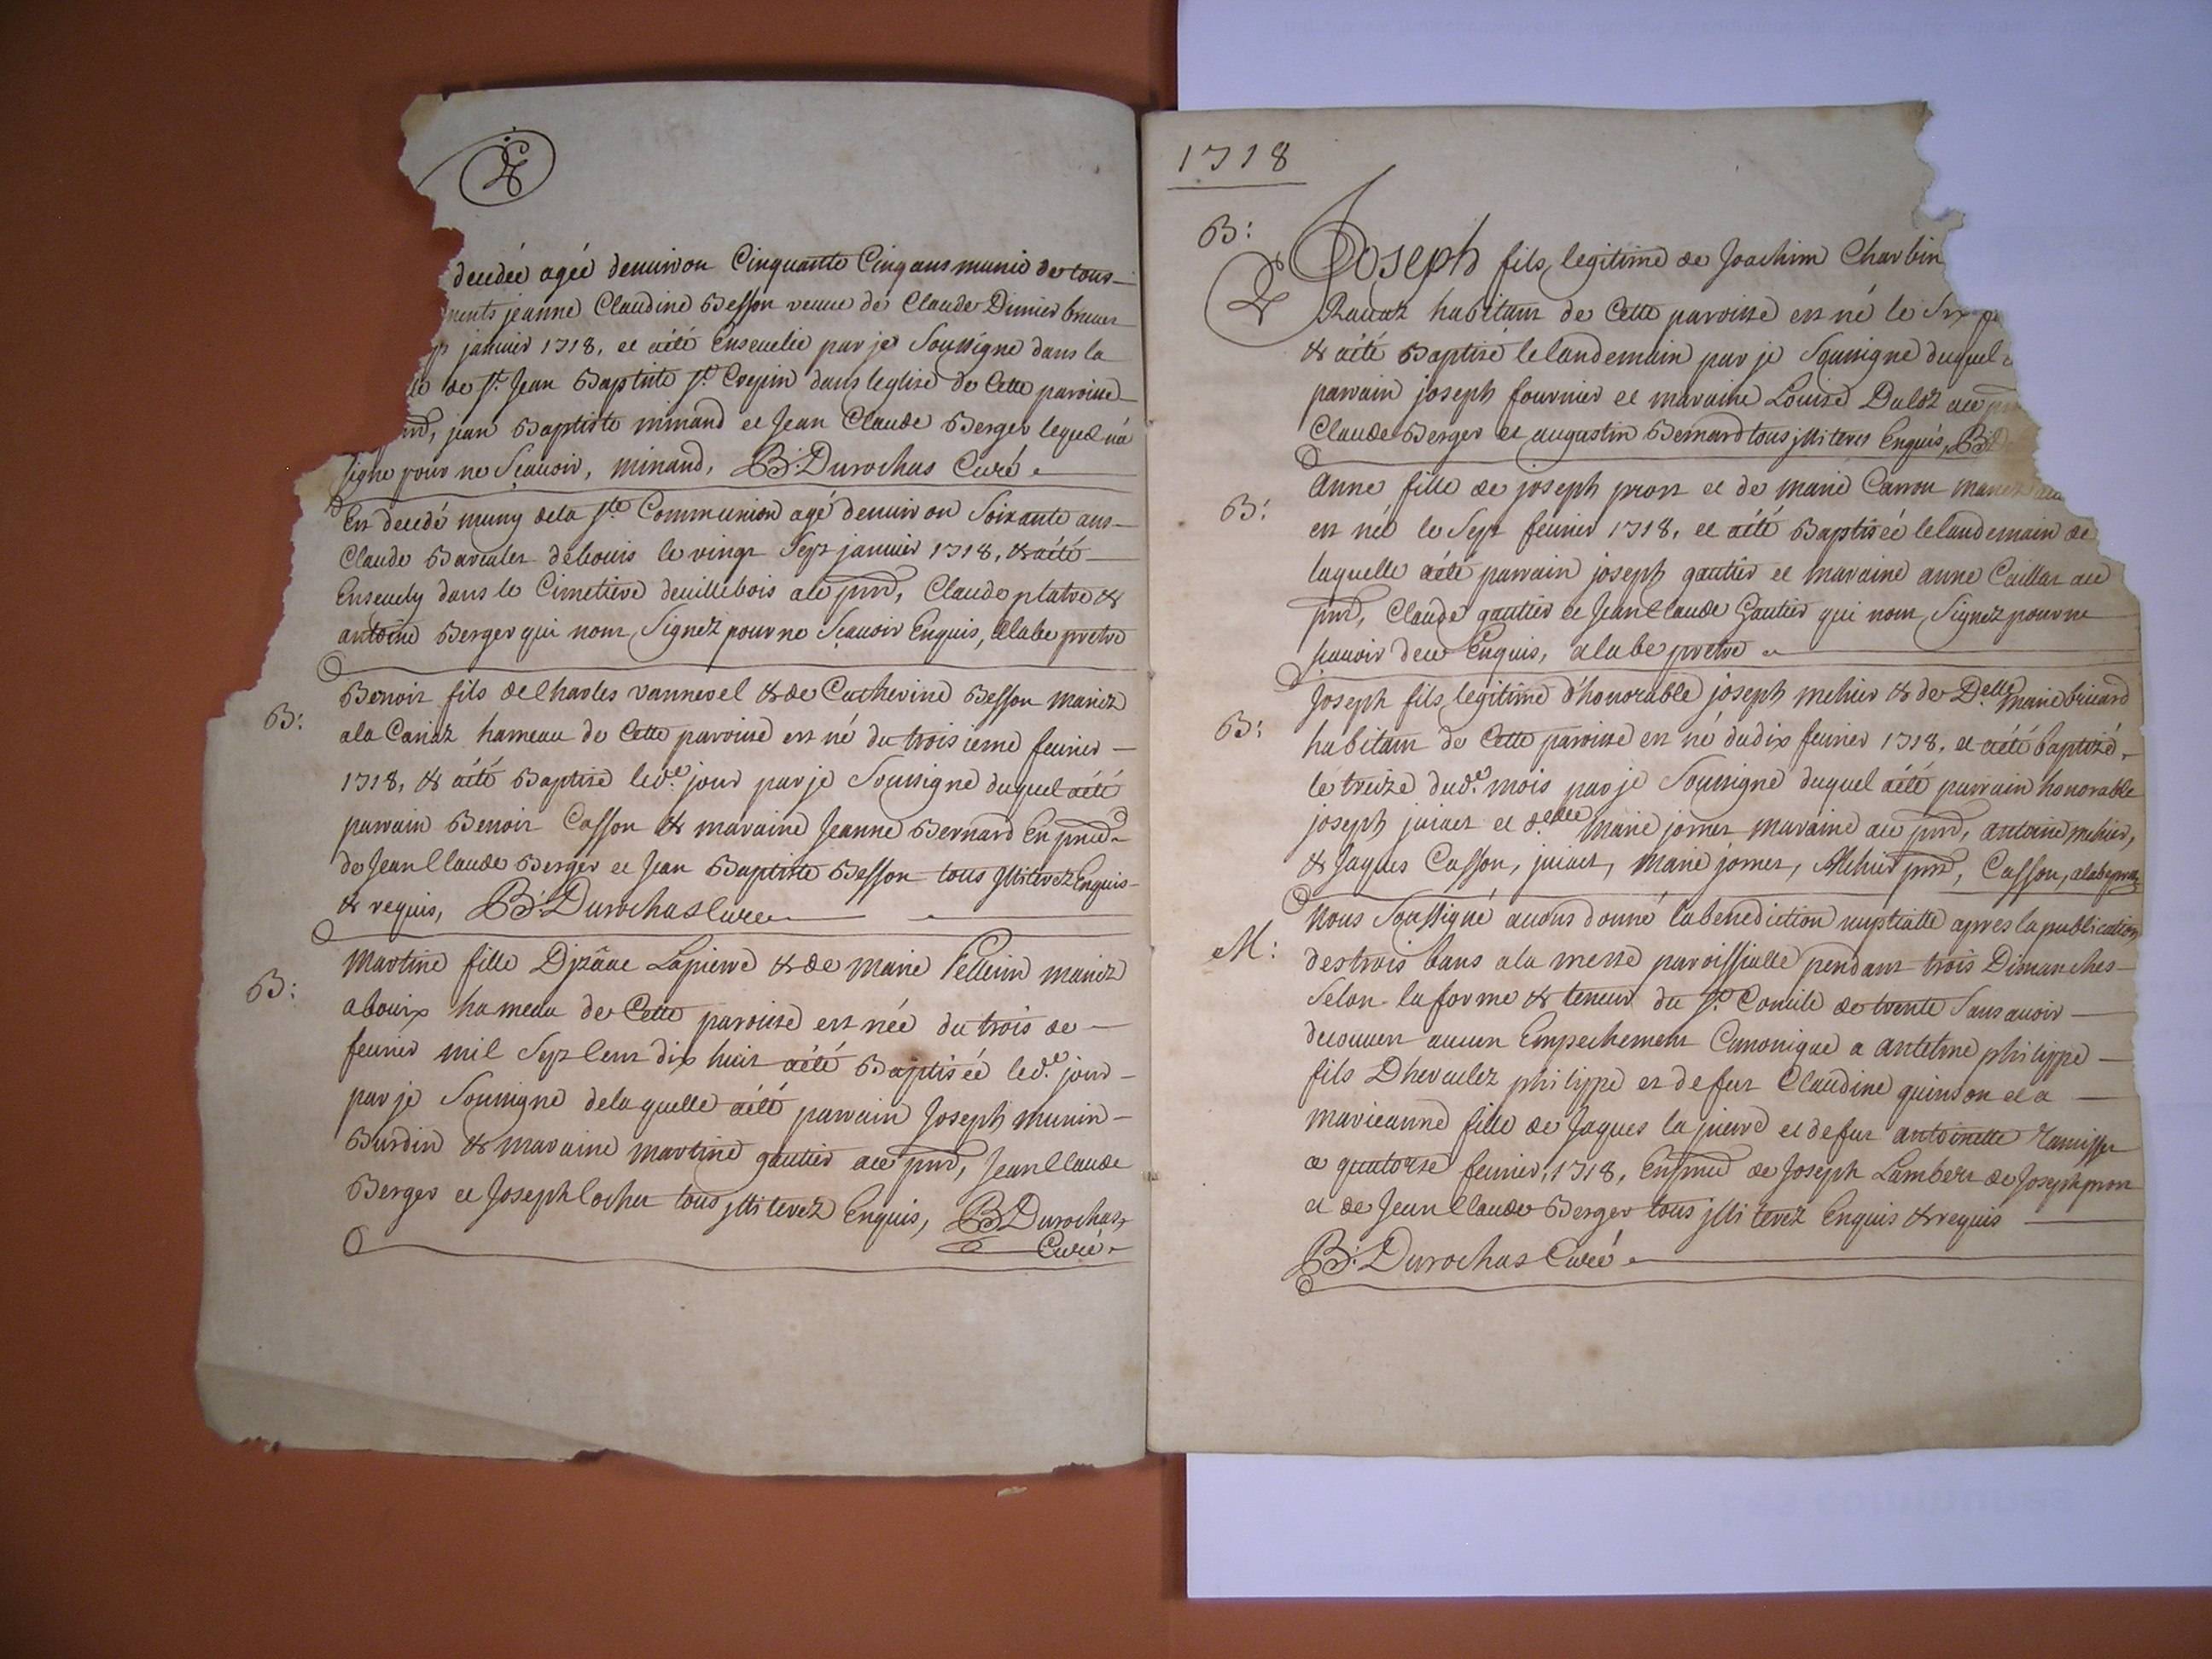 decedée agée denuiron Cinquante Cinq ans munie de tous
ments jeanne Claudine Besson veuue de Claude Dimier
januier 1718, et aété Enseuelie par je Soussigne dans la
de St. Jean Baptiste St. Crepin dans leglise de Cette paroisse
jean Baptiste minand et Jean Claude Berger lequel na
signe pour ne Sçauoir, minand, B: Durochas Curé
Est decedé muny dela Ste Communion agé denuiron Soixante ans
Claude le vingt Sept januier 1718, & aété
Enseuely dans le Cimetiere deuillebois ace prnd, Claude platre &
antoine Berger qui nont Signez pour ne Sçauoir Enquis, alabe pretre
B:
Benoit fils de Charles vannerel & de Catherine Besson mariez
ala hameau de Cette paroisse est né du troisieme feurier
1718, & aété Baptise le d.e jour par je Soussigne duquel aété
parrain Benoit Casson & maraine Jeanne Bernard En prnd
de Jean Claude Berger et Jean Baptiste Besson tous jllitevez Enquis
& requis, B: Durochas Curé
B:
Martine fille Djzâac Lapierre & de marie Pellerin mariez
abouix hameau de Cette paroisse est née du trois de
feurier mil Sept Cent dix huit aété Baptisée le d.e jour
par je Soussigne delaquelle aété parrain Joseph munin
Burdin & maraine martine gautier ace prnd, Jean Claude
Berger et Joseph Cochet tous jllitevez Enquis, B: Durochas
Curé
1718
B:
Joseph fils legitime de Joachim Charbin
Rauaz habitans de Cette paroisse est né le Six
& aété Baptisé le landemain par je Soussigne duquel
parrain joseph fournier et maraine Louise ace
Claude Berger et augustin Bernard tous jllitevez Enquis, B:
B:
Anne fille de joseph prost et de marie Carron mariez
est née le Sept feurier 1718, et aété Baptisée le landemain de
laquelle aété parrain joseph gautier et maraine anne Caillat ace
prnd, Claude gautier et Jean Claude Gautier qui nont Signez pour ne
sçauoir de ce Enquis, alabe pretre
B:
Joseph fils legitime d'honorable joseph mehier & de Delle marie bricard
habitans de Cette paroisse est né du dix feurier 1718, et aété baptizé
le treize du d.e mois par je Soussigne duquel aété parrain honorable
joseph juiaet et delle marie jornet maraine ace prnd, antoine mehier,
& Jaques Casson, juiaet, marie jornet, Mehier prnd, Casson, alabe
M:
Nous Soussigné auons donné la benediction nuptialle apres la publication
des trois bans ala messe paroissialle pendant trois Dimanches
Selon la forme & teneur du St. Concile de trente Sans auoir
decouuert aucun Empechement Canonique a antelme philippe
fils Dherculez philippe et defut Claudine quinson et a
marieanne fille de Jaques la pierre et defut antoinette
ce quatorse feurier, 1718, En prnd de Joseph Lambert de Joseph prost
et de Jean Claude Berger tous jlli tevez Enquis & requis
B: Durochas Curé